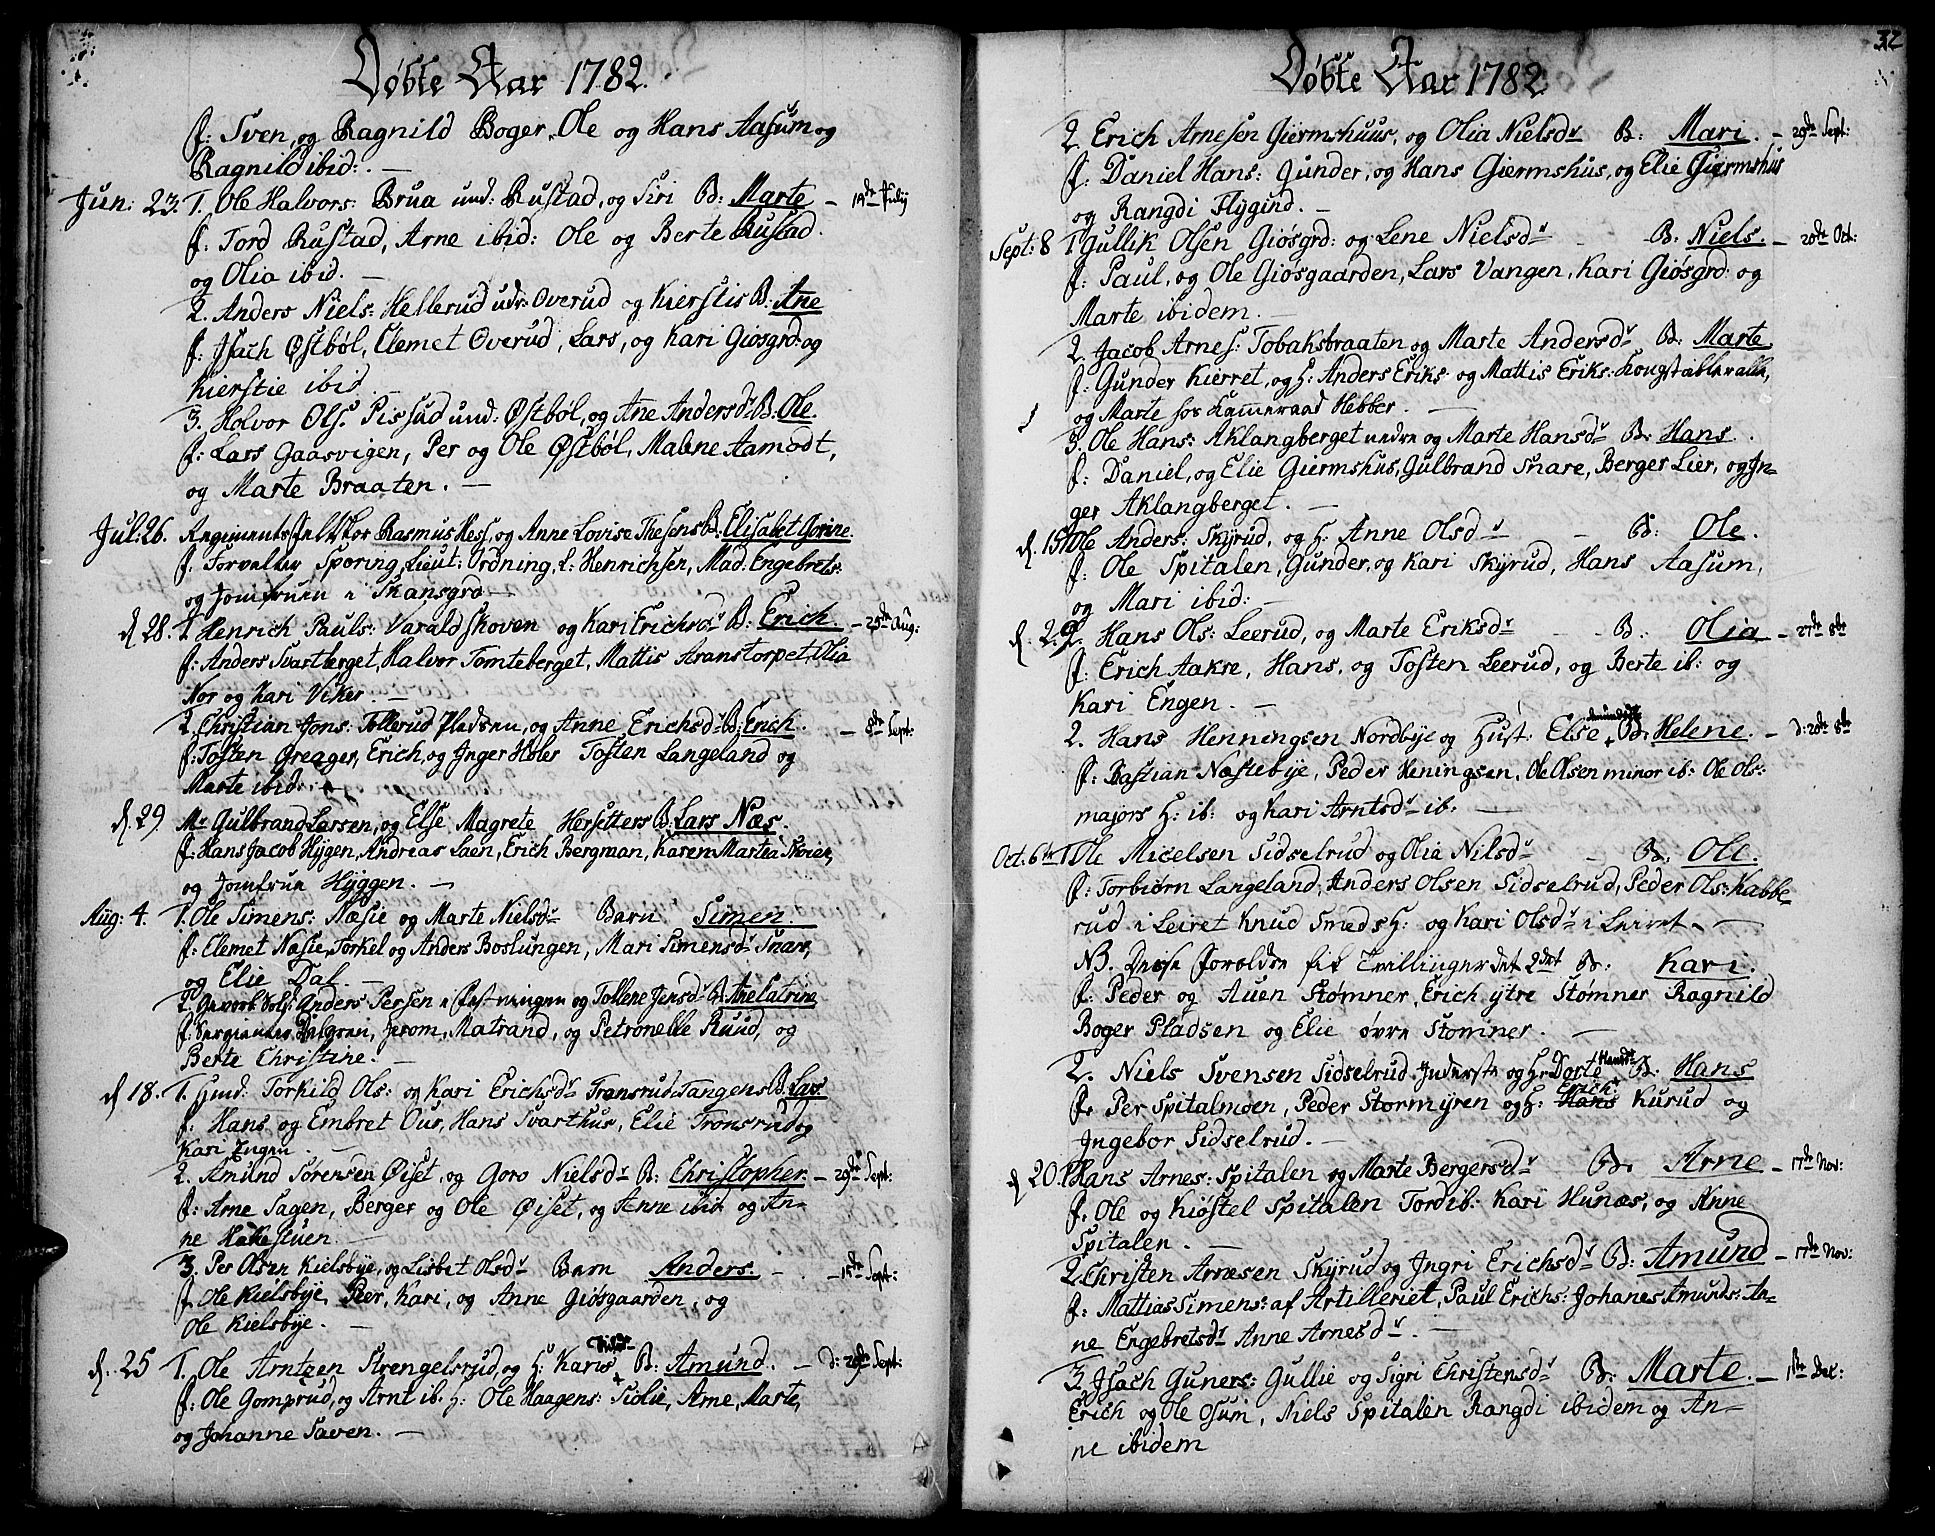 Døbte Aar 1782.
f: Sven, og Ragnild Boger, Ole og Hans Aasum og
Ragnild ibid: . —
Jun: 23. 1. Ole Halvors: Brua und: Rustad, og Siri B: Marte — 14de July
f: Tord Rustad, Arne ibid: Ole og Berte Rustad.
og Olia ibid. —
2. Anders Niels: Hellerud und: Overud og Kierstis B: Ane
f: Isach Østbøl, Clemet Overud, Lars, og Kari Giosgrd: og
Kierstie ibid. —
3. Holvor Ols. Pissud und: Østbøl, og Ane Andersd: B: Ole.
f: Lars Gaasvigen, Per og Ole Østbøl, Malene Aamodt,
og Marte Braaten. —
Jul: 26. Regiments Rasmus Hess, og Anne Lovise Thesens B: Elisabet Gorine
f: Forvalter Sporing, Lieut: Ordning, L: Henrichsen, Mad: Engebrets:
og Jomfruen i Skansgrd —
d. 28. 1. Henrich Pauls: Varaldskoven og Kari Erichsdr B: Erich. — 25de Aug:
f: Anders Svartberget, Halvor Tomteberget, Mattis Aranstorpet, Olia
Nor og Kari Viker —
2. Christian Jons: Tollerud Pladsen, og Anne Erichsdr B: Erich. — 8de Sept:
f: Tosten Greager, Erich, og Inger Holer Tosten Langeland og
Marte ibid: —
d. 29 Mr Gulbrand Larsen, og Else Magrete Hersetters B: Lars Næs.
f: Hans Jacob Hygen, Andreas Laen, Erich Bergman, Karen Martea Skoien,
og Jomfrue Hyggen. —
Aug: 4. 1. Ole Simens: Næsie og Marte Nielsdr Barn Simen.
f: Clemet Næsie, Torkel og Anders Boslungen, Mari Simensdr Snare,
og Elie Dal. —
2. Gevorb: Sol: Anders Persen i Festningen og Tollene Jensdr B: Ane Catrine
f: Sergianter Dalgren, Jerom, Matrand, og Petronelle Ruud, og
Berte Christine. —
d. 18. 1. Hmd: Torkild Ols: og Kari Erichsdr Transrud-Tangens B: Lars
f: Hans og Embret Our, Hans Svarthus, Elie Tronsrud og
Kari Engen. —
2. Amund Sørensen Øiset, og Goro Nielsdr B: Christopher. — 29de Sept:
f: Arne Sagen, Berger og Ole Øiset, og Anne ibid. og An-
ne Hakestuen. —
3. Per Olsen Kielsbye, og Lisbet Olsdr Barn Anders. — 15de Sept:
f: Ole Kielsbye, Peer, Kari, og Anne Giøsgaarden, og
Ole Kielsbye. —
d. 25 1. Ole Arntzen Strengelsrud, og H: Karis B: Amund. — d: 29de Sept:
f: Ole Gomprud, og Arnt ib. H: Ole Haagens: Siolie, Arne, Marte,
og Johanne Saven. —
32
Døbte Aar 1782
2. Erich Arnesen Giermshuus, og Olia Nielsdr B: Mari. — 29de Sept:
f: Daniel Hans: Gunder, og Hans Giermshus, og Elie Giermshus
og Rangdi Flygind. —
Sept: 8 1. Gullik Olsen Giøsgrd: og Lene Nielsdr — B: Niels. — 20de Oct:
f: Paul, og Ole Giøsgaarden, Lars Vangen, Kari Giøsgrd: og
Marte ibidem. —
2. Jacob Arnes: Tobaksbraaten og Marte Andersdr B: Marte.
f: Gunder Kierret, og H: Anders Eriks: og Mattis Eriks: Kongstabler alle,
og Marte hos Kammeraad Hebber. —
3. Ole Hans: Aklangberget nedre og Marte Hansdr B: Hans.
f: Daniel, og Elie Giermshus, Gulbrand Snare, Berger Lier, og In-
ger Aklangberget. —
d. 15. 1. Ole Anders: Skyrud, og H: Anne Olsdr — B: Ole.
f: Ole Spitalen, Gunder, og Kari Skyrud, Hans Aasum,
og Mari ibid: —
d. 29. Hans Ols: Leerud, og Marte Eriksdr — B: Olia — 27de 8br
f: Erich Aakre, Hans, og Tosten Leerud, og Berte ib: og
Kari Engen. —
2. Hans Henningsen Nordbye og Hust: Else Amundsdr B. Helene. — d: 20de 8br
f: Bastian Næstebye, Peder Heningsen, Ole Olsen minor ib: Ole Ols:
majors H: ib: og Kari Arntsdr ib: —
Oct. 6te 1. Ole Micelsen Sidselrud og Olia Nilsdr — B: Ole.
f: Torbiørn Langeland, Anders Olsen Sidselrud, Peder Ols: Kabbe-
rud i Leiret Knud Smeds H: og Kari Olsdr i Leiret. —
NB. Disse Foreldre fik Tvillinger det 2det B: Kari.
f: Peder og Auen Stømner, Erich ytre Stømner Ragnild
Boger Pladsen og Elie øvre Stomner. —
2. Niels Svensen Sidselrud Inderste og H: Dorte Hansdr B: Hans
f: Per Spitalmoen, Peder Stormyren og H: Hans Erich: Kurud og
Ingebor Sidselrud. —
d. 20. 1. Hans Arnes: Spitalen og Marte Bergersdr B. Arne — 17de Nov:
f. Ole og Kiøstel Spitalen Tord ib: Kari Hunæs, og Anne
Spitalen. —
2. Christen Arnesen Skyrud og Ingri Erichsdr B: Amund — 17de Nov:
f: Mattias Simens: af Artilleriet, Paul Erichs: Johanes Amunds: An-
ne Engebretsdr Anne Arnesdr. —
3. Isach Guners: Gullie og Sigri Christensdr B: Marte. — 1ste Dec:
Erich og Ole Osum, Niels Spitalen Rangdi ibidem og An-
ne ibidem